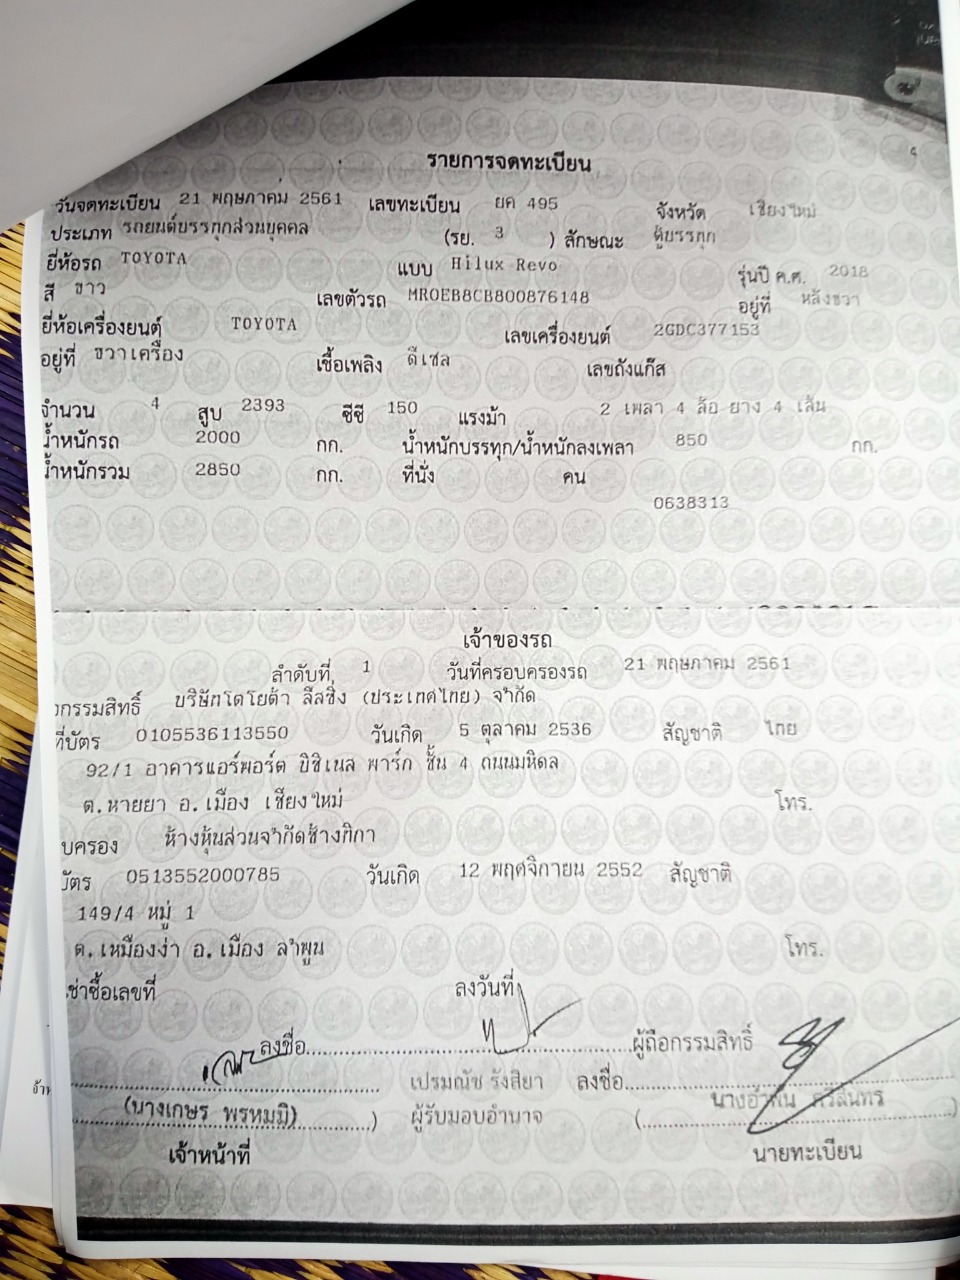 รายการจดทะเบียน
วันจดทะเบียน 21 พฤษภาคม 2561 เลขทะเบียน ยค 495 จังหวัด เชียงใหม่
ประเภท รถยนต์บรรทุกส่วนบุคคล (รย. 3 ) ลักษณะ ตู้บรรทุก
ยี่ห้อรถ TOYOTA แบบ Hilux Revo รุ่นปี ค.ศ. 2018
สี ขาว เลขตัวรถ MR0EB8CB800876148 อยู่ที่ หลังขวา
ยี่ห้อเครื่องยนต์ TOYOTA เลขเครื่องยนต์ 2GDC377153
อยู่ที่ ขวาเครื่อง เชื้อเพลิง ดีเซล เลขถังแก๊ส
จำนวน 4 สูบ 2393 ซีซี 150 แรงม้า 2 เพลา 4 ล้อ ยาง 4 เส้น
น้ำหนักรถ 2000 กก. น้ำหนักบรรทุก/น้ำหนักลงเพลา 850 กก.
น้ำหนักรวม 2850 กก. ที่นั่ง คน
0638313
เจ้าของรถ
ลำดับที่ 1 วันที่ครอบครองรถ 21 พฤษภาคม 2561
กรรมสิทธิ์ บริษัทโตโยต้า ลีสซิ่ง (ประเทศไทย) จำกัด
ที่บัตร 0105536113550 วันเกิด 5 ตุลาคม 2536 สัญชาติ ไทย
92/1 อาคารแอร์พอร์ต บิซิเนส พาร์ก ชั้น 4 ถนนมหิดล
ต.หายยา อ.เมือง เชียงใหม่ โทร.
บครอง ห้างหุ้นส่วนจำกัดช้างกิกา
บัตร 0513552000785 วันเกิด 12 พฤศจิกายน 2552 สัญชาติ
149/4 หมู่ 1
ต.เหมืองง่า อ.เมือง ลำพูน โทร.
เช่าซื้อเลขที่ ลงวันที่
ลงชื่อ ผู้ถือกรรมสิทธิ์
เปรมณัช รังสิยา ลงชื่อ
(นางเกษร พรหมมิ) ผู้รับมอบอำนาจ (นางอำพัน ศรีสันทร)
เจ้าหน้าที่ นายทะเบียน